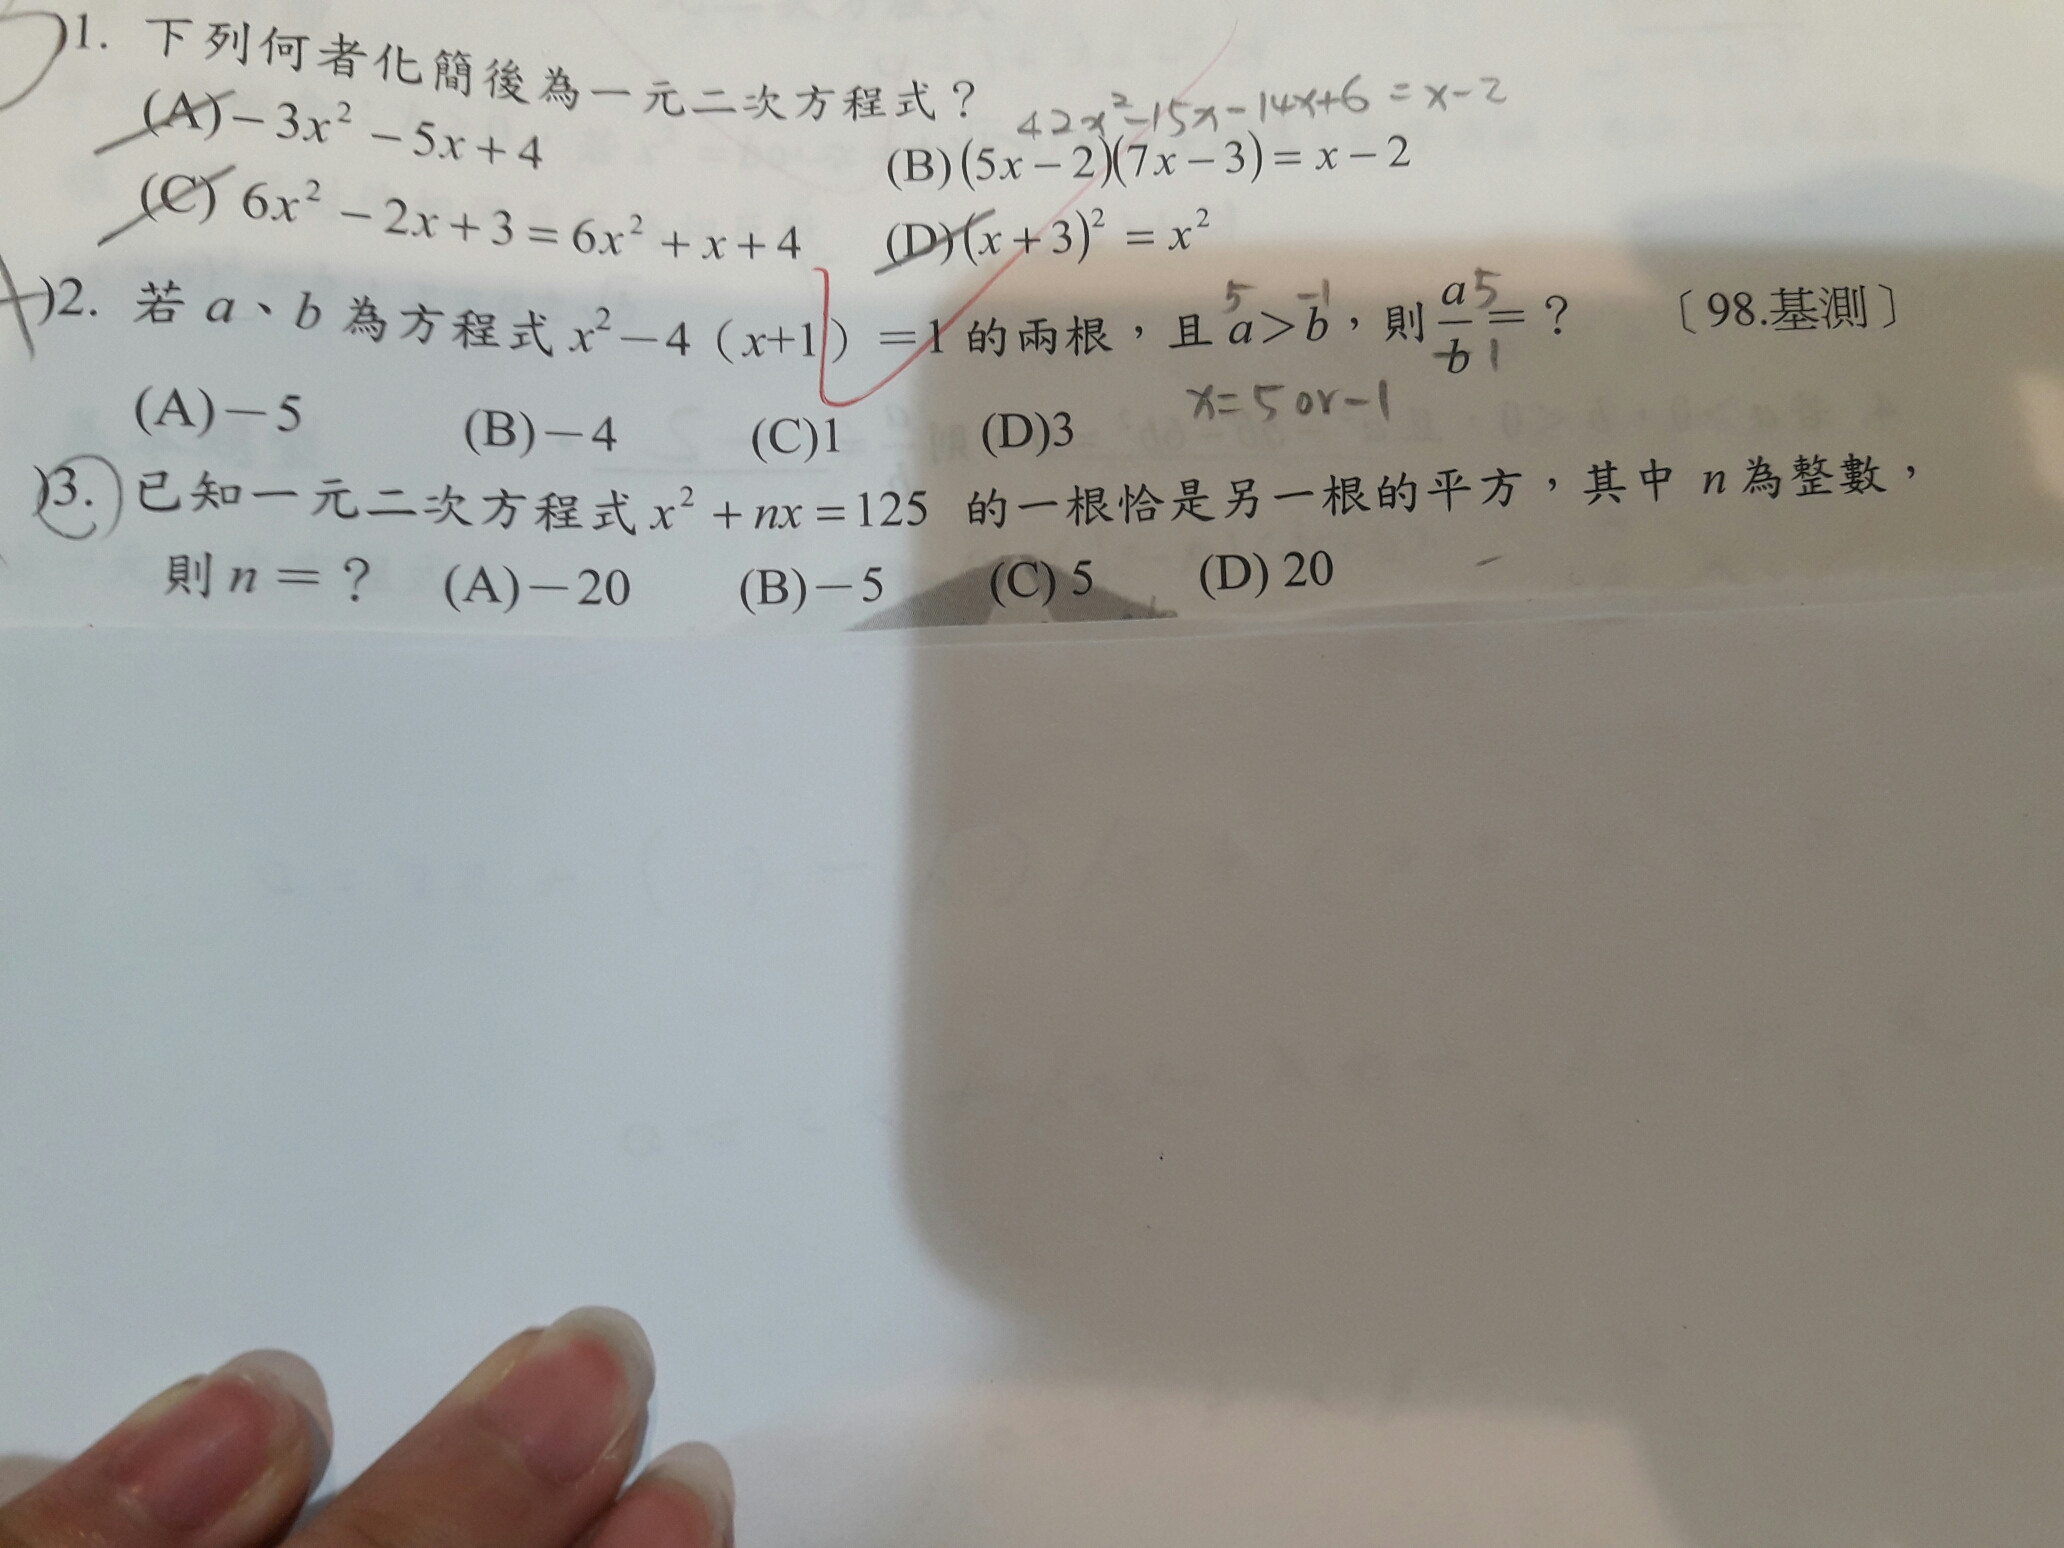 )1. 下列何者化簡後為一元二次方程式？
42x²-15x-14x+6=x-2
(A)－3x²－5x＋4 (B)(5x－2)(7x－3)＝x－2
(C) 6x²－2x＋3＝6x²＋x＋4 (D)(x＋3)²＝x²
5 -1 5
)2. 若 a、b 為方程式 x²－4（x+1）＝1 的兩根，且 a＞b，則 a/b＝？ 〔98.基測〕
-1
x=5 or-1
(A)－5 (B)－4 (C)1 (D)3
)3. 已知一元二次方程式 x²＋nx＝125 的一根恰是另一根的平方，其中 n 為整數，
則 n＝？ (A)－20 (B)－5 (C) 5 (D) 20